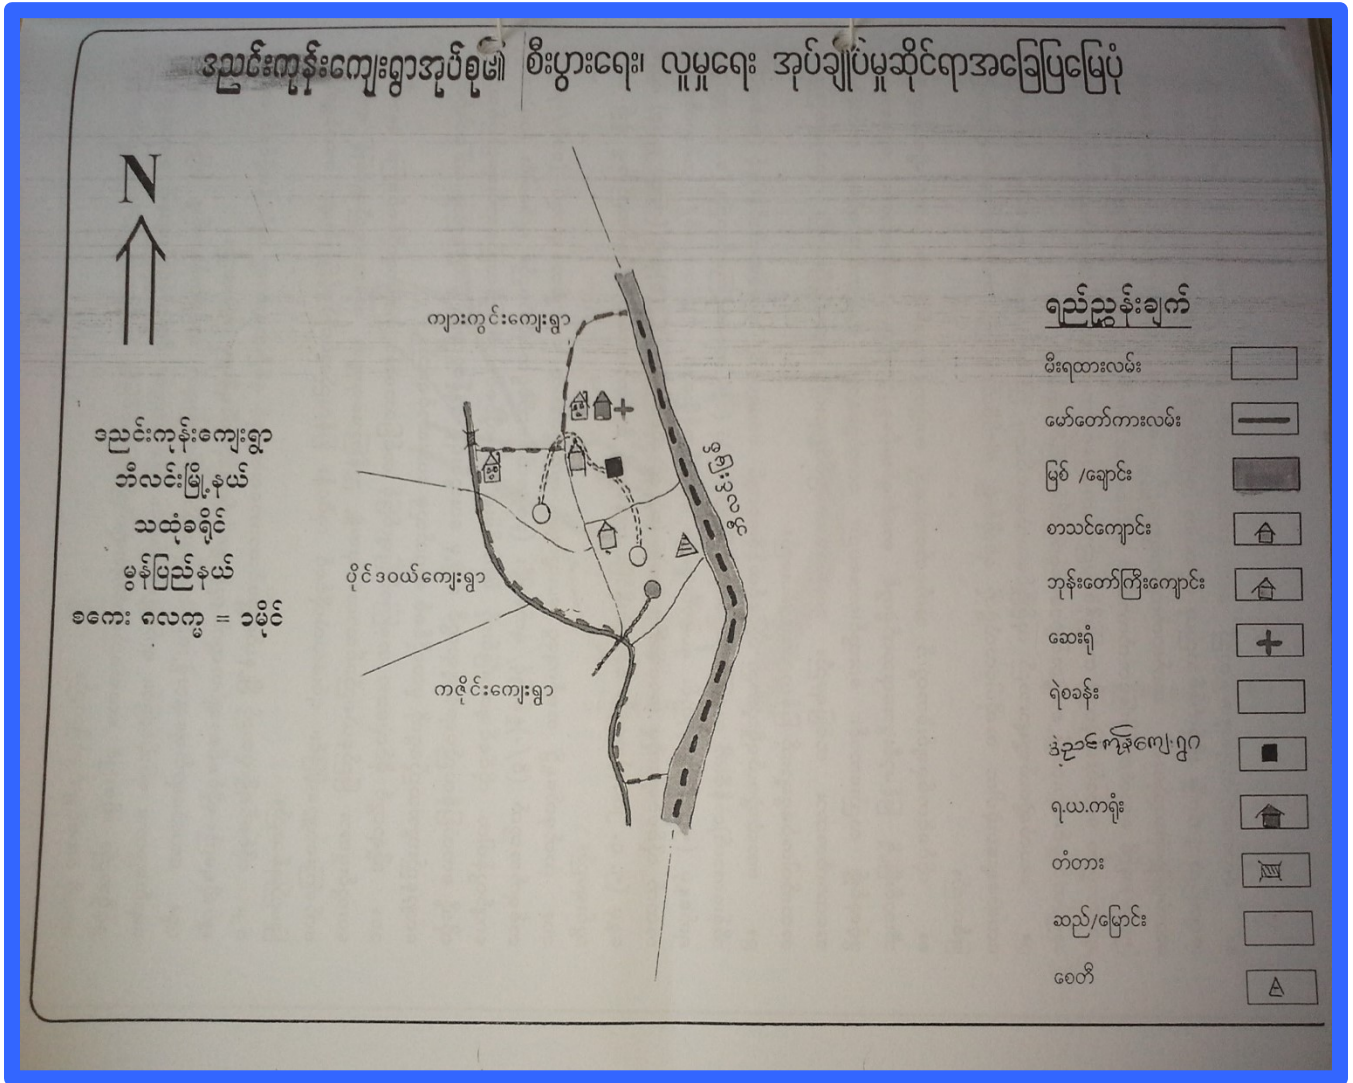 ဒညင်းကုန်းကျေးရွာအုပ်စု၏ စီးပွားရေး၊ လူမှုရေး အုပ်ချုပ်မှုဆိုင်ရာအခြေပြမြေပုံ
N
ကျားကွင်းကျေးရွာ
ဒညင်းကုန်းကျေးရွာ
ဘီလင်းမြို့နယ်
သထုံခရိုင်
မွန်ပြည်နယ်
စကေး ၈လက္မ = ၁မိုင်
ပိုင်ဒဝယ်ကျေးရွာ
ကဇိုင်းကျေးရွာ
ရည်ညွှန်းချက်
မီးရထားလမ်း
မော်တော်ကားလမ်း
မြစ် /ချောင်း
စာသင်ကျောင်း
ဘုန်းတော်ကြီးကျောင်း
ဆေးရုံ
ရဲစခန်း
ဒညင်းကုန်းကျေးရွာ
ရ.ယ.ကရုံး
တံတား
ဆည်/မြောင်း
စေတီ